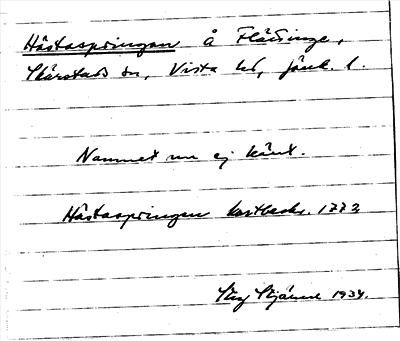 Hästaspringan å Flättinge,
Skärstads sn, Vista hd, Jönk. l.
Namnet nu ej känt.
Hästaspringan kartbeskr. 1773
Stig Stjärne 1934.